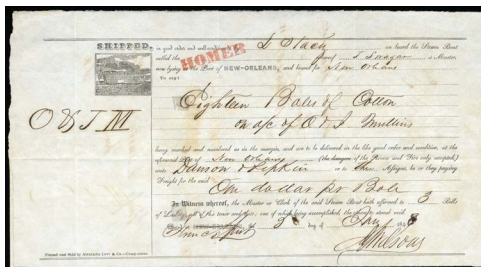 SHIPPED, in good order and well conditioned by S Stacy on board the Steam Boat
called the HOMER whereof T Swagar is Master
now lying in the Port of NEW-ORLEANS, and bound for New Orleans
To say:
Eighteen Bales of Cotton
on a/c of O & J Mullins
O & J M
being marked and numbered as in the margin, and are to be delivered in the like good order and condition, at the
aforesaid Port of New Orleans (the dangers of the River and Fire only excepted,)
unto Lipkin or to Their Assigns, he or they paying
Freight for the said
One dollar pr Bale
In Witness whereof, the Master or Clerk of the said Steam Boat hath affirmed to 3 Bills
of Lading, all of this tenor and date, one of which being accomplished, the others to stand void.
3 day of Jany
Printed and Sold by Alexander Levy & Co.